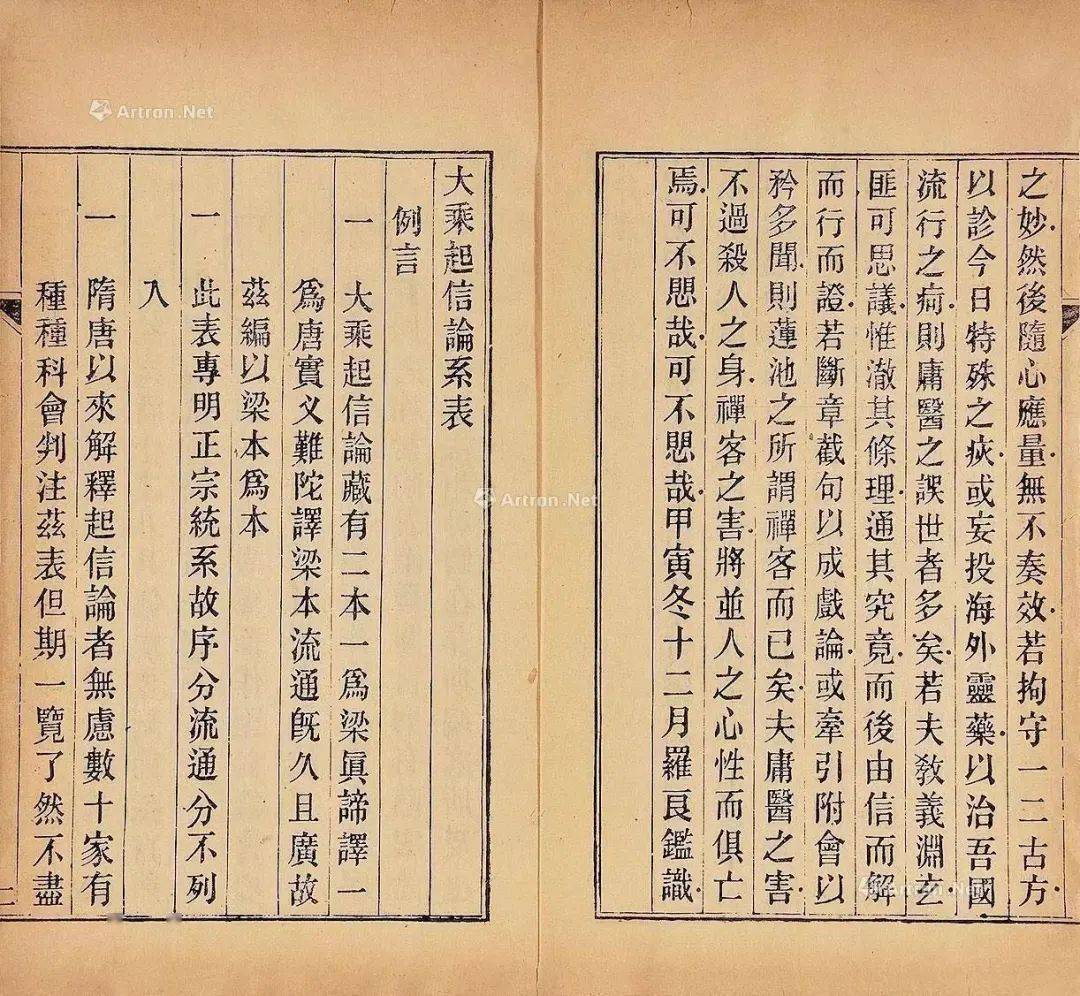 之妙然後隨心應量無不奏效若拘守一二古方
以診今日特殊之疾或妄投海外靈藥以治吾國
流行之疴則庸醫之誤世者多矣若夫敎義淵玄
匪可思議惟澈其條理通其究竟而後由信而解
而行而證若斷章截句以成戲論或牽引附會以
矜多聞則蓮池之所謂禪客而已矣夫庸醫之害
不過殺人之身禪客之害將並人之心性而俱亡
焉可不愳哉可不愳哉甲寅冬十二月羅良鑑識
大乘起信論系表
例言
一 大乘起信論藏有二本一爲梁眞諦譯一
爲唐實叉難陀譯梁本流通旣久且廣故
茲編以梁本爲本
一 此表專明正宗統系故序分流通分不列
入
一 隋唐以來解釋起信論者無慮數十家有
種種科會判注茲表但期一覽了然不盡
Artron.Net
Artron.Net
Artron.Net